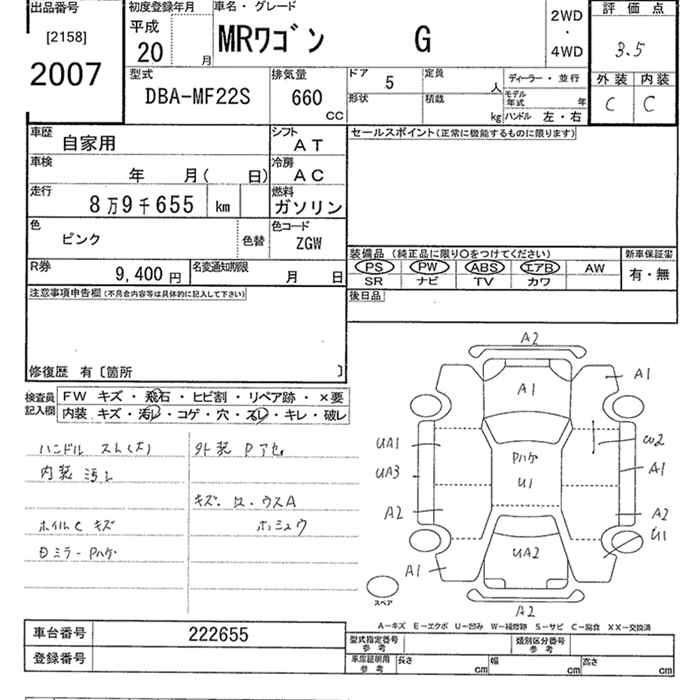 出品番号
[2158]
2007
初度登録年月
平成
20
月
車名・グレード
MRワゴン G
2WD
・
4WD
評価点
3.5
外装 内装
C C
型式
DBA-MF22S
排気量
660
CC
ドア
5
定員
人
形状
積載
kg
ディーラー・並行
モデル
年式
年
ハンドル 左・右
車歴
自家用
シフト
AT
車検
年 月( 日)
冷房
AC
走行
8万9千655 km
燃料
ガソリン
色
ピンク
色替
色コード
ZGW
R券
9,400 円
名変通知期限
月 日
セールスポイント(正常に機能するものに限ります)
装備品 (純正品に限り○をつけてください)
新車保証書
PS PW ABS エアB AW
SR ナビ TV カワ
有・無
後日品
注意事項申告欄(不具合内容等は具体的に記入して下さい)
修復歴 有〔箇所 〕
検査員
記入欄
FW キズ・飛石・ヒビ割・リペア跡・×要
内装 キズ・汚レ・コゲ・穴・スレ・キレ・破レ
ハンドル スレ(大)
外装 Pアセ
内装 汚レ
キズ・凹・ウスA
ホイルC キズ
ホシュウ
Dミラー Pハゲ
A2
A1
A1
UA1
W2
Pハゲ
U1
UA3
A1
A2
A2
U1
UA2
A1
A2
スペア
A-キズ E-エクボ U-凹み W-補修跡 S-サビ C-腐食 XX-交換済
車台番号
222655
登録番号
型式指定番号
参考
類別区分番号
参考
車庫証明用
参考
長さ
cm
幅
cm
高さ
cm